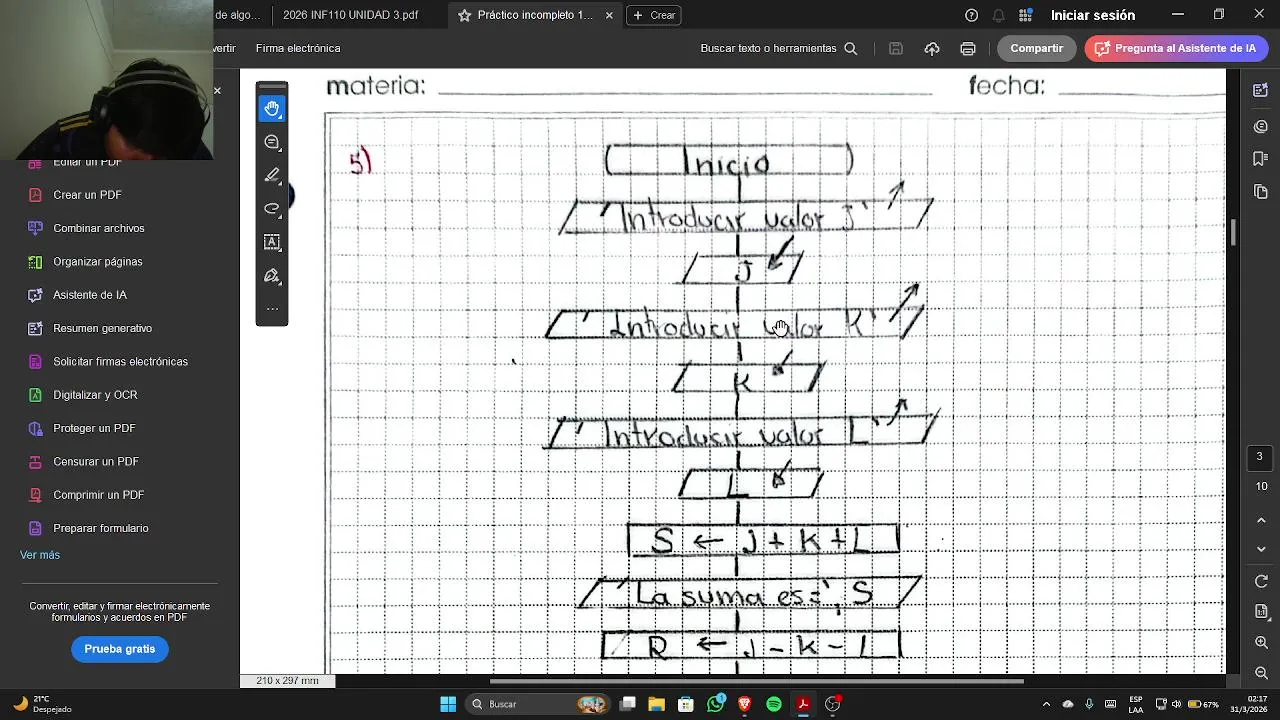 de algo...
2026 INF110 UNIDAD 3.pdf
Práctico incompleto 1...
Crear
Iniciar sesión
Firma electrónica
Buscar texto o herramientas
Compartir
Pregunta al Asistente de IA
materia:
fecha:
Editar un PDF
Crear un PDF
Organizar páginas
Asistente de IA
Resumen generativo
Solicitar firmas electrónicas
Digitalizar y OCR
Proteger un PDF
Censurar un PDF
Comprimir un PDF
Preparar formulario
Ver más
Convierta, edite y firme electrónicamente
formularios y acuerdos en PDF
Prueba gratis
5)
Inicio
'Introducir valor j'
J
'Introducir valor K'
K
'Introducir valor L'
L
S ← j + K + L
'La suma es=', S
R ← j - K - L
3
10
210 x 297 mm
21°C
Despejado
Buscar
1
ESP
LAA
67%
02:17
31/3/2026